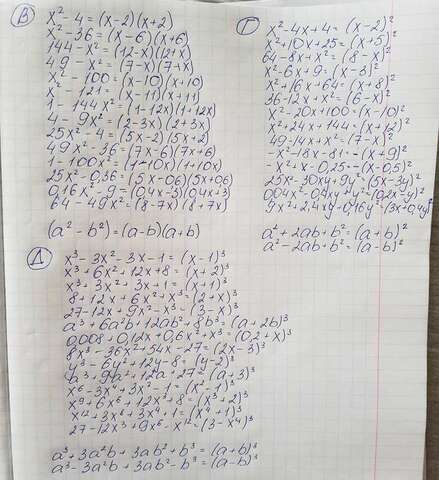 В
x² - 4 = (x-2)(x+2)
x² - 36 = (x-6)(x+6)
144 - x² = (12-x)(12+x)
49 - x² = (7-x)(7+x)
x² - 100 = (x-10)(x+10)
x² - 121 = (x-11)(x+11)
1 - 144x² = (1-12x)(1+12x)
4 - 9x² = (2-3x)(2+3x)
25x² - 4 = (5x-2)(5x+2)
49x² - 36 = (7x-6)(7x+6)
1 - 100x² = (1-10x)(1+10x)
25x² - 0,36 = (5x-0,6)(5x+0,6)
0,16x² - 9 = (0,4x-3)(0,4x+3)
64 - 49x² = (8-7x)(8+7x)
(a² - b²) = (a-b)(a+b)
Г
x² - 4x + 4 = (x-2)²
x² + 10x + 25 = (x+5)²
64 - 8x + x² = (8-x)²
x² - 6x + 9 = (x-3)²
x² + 16x + 64 = (x+8)²
36 - 12x + x² = (6-x)²
x² - 20x + 100 = (x-10)²
x² + 24x + 144 = (x+12)²
49 - 14x + x² = (7-x)²
-x² - 18x - 81 = -(x+9)²
-x² + x - 0,25 = -(x-0,5)²
25x² - 30xy + 9y² = (5x-3y)²
0,04x² - 0,4xy + y² = (0,2x-y)²
9x² + 2,4xy + 0,16y² = (3x+0,4y)²
a² + 2ab + b² = (a+b)²
a² - 2ab + b² = (a-b)²
Д
x³ - 3x² - 3x - 1 = (x-1)³
x³ + 6x² + 12x + 8 = (x+2)³
x³ + 3x² + 3x + 1 = (x+1)³
8 + 12x + 6x² + x³ = (2+x)³
27 - 12x + 9x² - x³ = (3-x)³
a³ + 6a²b + 12ab² + 8b³ = (a+2b)³
0,008 + 0,12x + 0,6x² + x³ = (0,2+x)³
8x³ - 36x² + 54x - 27 = (2x-3)³
y³ - 6y² + 12y - 8 = (y-2)³
a³ + 9a² + 12a + 27 = (a+3)³
x⁶ - 3x⁴ + 3x² - 1 = (x²-1)³
x⁹ + 6x⁶ + 12x³ + 8 = (x³+2)³
x¹² + 3x⁸ + 3x⁴ + 1 = (x⁴+1)³
27 - 12x⁴ + 9x⁸ - x¹² = (3-x⁴)³
a³ + 3a²b + 3ab² + b³ = (a+b)³
a³ - 3a²b + 3ab² - b³ = (a-b)³